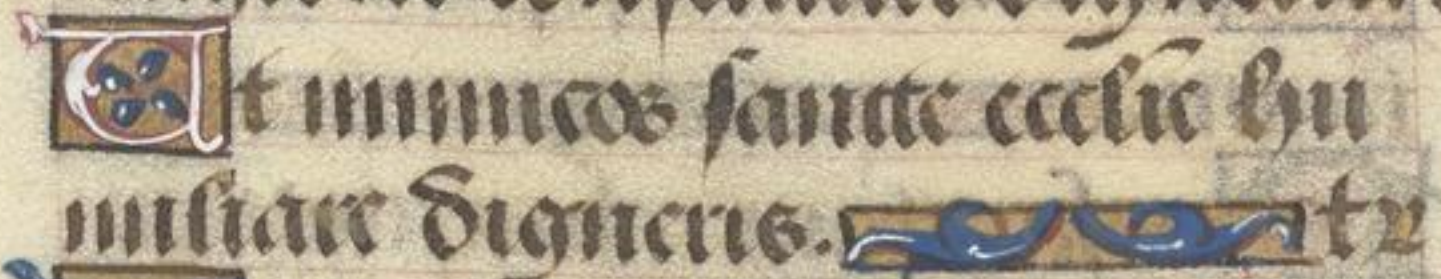 Ut inimicos sancte ecclīe hu
miliare digneris. t r